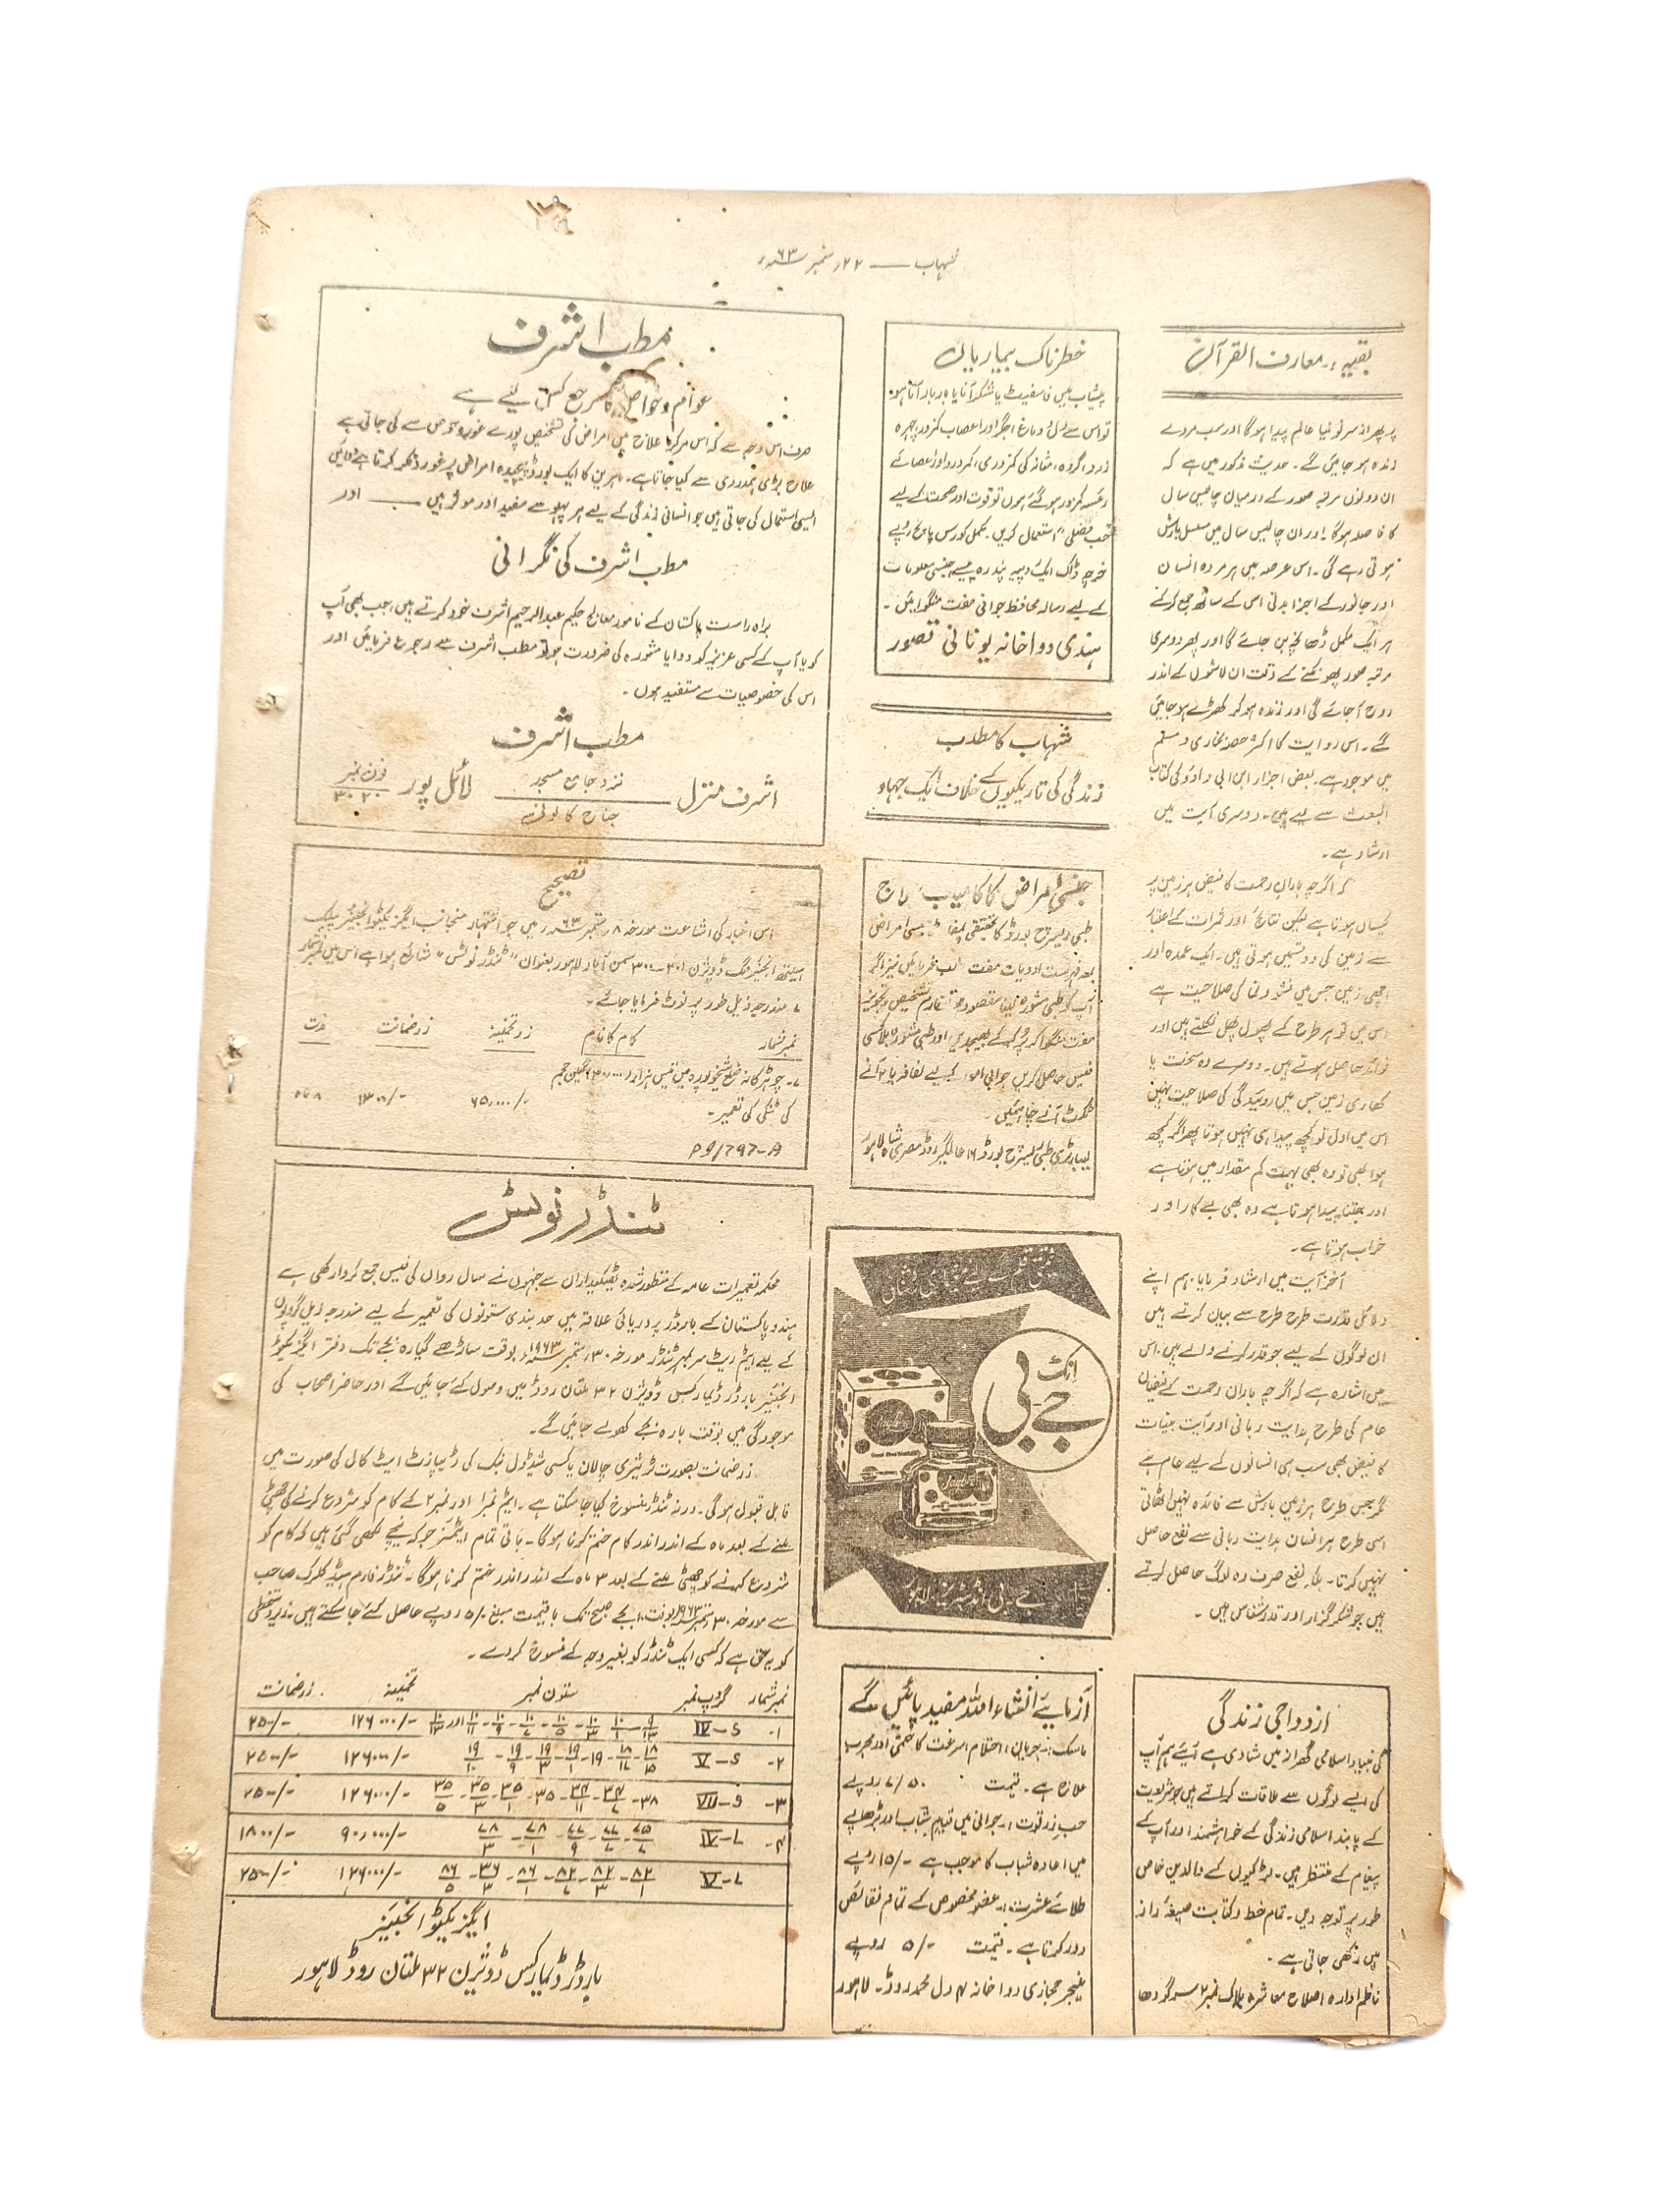 شہاب —— ۲۲؍ ستمبر ۶۳ء
بقیہ : معارف القرآن
پر پھر از سر نو نیا عالم پیدا ہوگا اور سب مردے
زندہ ہو جائیں گے۔ حدیث مذکور میں ہے کہ
ان دونوں مرتبہ صور کے درمیان چالیس سال
کا فاصلہ ہوگا اور ان چالیس سال میں مسلسل بارش
ہوتی رہے گی۔ اس عرصہ میں ہر مردہ انسان
اور جانور کے اجزا بدنی اس کے ساتھ جمع کرکے
ہر ایک مکمل ڈھانچہ بن جائے گا اور پھر دوسری
مرتبہ صور پھونکنے کے وقت ان لاشوں کے اندر
روح آ جائے گی اور زندہ ہو کر کھڑے ہو جائیں
گے۔ اس روایت کا اکثر حصہ بخاری و مسلم
میں موجود ہے۔ بعض اجزاء ابن ابی داؤد کی کتاب
البعث سے لیے ہیں۔ دوسری آیت میں
ارشاد ہے۔
کہ اگرچہ باران رحمت کا فیض ہر زمین پر
یکساں ہوتا ہے لیکن نتائج اور ثمرات کے اعتبار
سے زمین کی دو قسمیں ہوتی ہیں۔ ایک عمدہ اور
اچھی زمین جس میں نشوونما کی صلاحیت ہے
اس میں تو ہر طرح کے پھول پھل نکلتے ہیں اور
فوائد حاصل ہوتے ہیں۔ دوسرے وہ سخت یا
کھاری زمین جس میں روئیدگی کی صلاحیت نہیں
اس میں اول تو کچھ پیدا ہی نہیں ہوتا پھر اگر کچھ
ہوا بھی تو وہ بھی بہت کم مقدار میں ہوتا ہے
اور جتنا پیدا ہوتا ہے وہ بھی بے کار اور
خراب ہوتا ہے۔
آخر آیت میں ارشاد فرمایا، ہم اپنے
دلائل قدرت طرح طرح سے بیان کرتے ہیں
ان لوگوں کے لیے جو قدر کرنے والے ہیں۔ اس
میں اشارہ ہے کہ اگرچہ باران رحمت کے فیضان
عام کی طرح ہدایت ربانی اور آیت بینات
کا فیض بھی سب ہی انسانوں کے لیے عام ہے
مگر جس طرح ہر زمین بارش سے فائدہ نہیں اٹھاتی
اسی طرح ہر انسان ہدایت ربانی سے نفع حاصل
نہیں کرتا۔ بلکہ نفع صرف وہ لوگ حاصل کرتے
ہیں جو شکر گزار اور قدر شناس ہیں۔
ازدواجی زندگی
کی بنیاد اسلامی گھرانہ میں شادی ہے آیئے ہم آپ
کی ایسے لوگوں سے ملاقات کراتے ہیں جو شریعت
کے پابند اسلامی زندگی کے خواہشمند اور آپ کے
پیغام کے منتظر ہیں۔ لڑکیوں کے والدین خاص
طور پر توجہ دیں۔ تمام خط و کتابت صیغۂ راز
میں رکھی جاتی ہے۔
ناظم ادارہ اصلاح معاشرہ بلاک نمبر ۲ سرگودھا
خطرناک بیماریاں
پیشاب میں فاسفیٹ یا شکر آنا یا بار بار آتا ہو
تو اس سے دل و دماغ، جگر اور اعصاب کمزور، چہرہ
زرد، گردہ، مثانہ کی کمزوری، کمر درد اور اعضائے
رئیسہ کمزور ہو گئے ہوں تو قوت اور صحت کے لیے
"حب فضلی" استعمال کریں۔ مکمل کورس پانچ روپے
خرچہ ڈاک ایک روپیہ پندرہ پیسے جنسی معلومات
کے لیے رسالہ محافظ جوانی مفت منگوائیں۔
ہندی دواخانہ یونانی قصور
شہاب کا مطلب
زندگی کی تاریکیوں کے خلاف ایک جہاد
جنسی امراض کا کامیاب علاج
طبی ریسرچ بورڈ کا تحقیقی پمفلٹ جنسی امراض
بمعہ فہرست ادویات مفت طلب فرمائیں نیز اگر
آپ کو طبی مشورہ لینا مقصود ہو تو فارم تشخیص و تجویز
مفت منگوا کر پُر کر کے بھیجدیں اور طبی مشورہ بلا کسی
فیس حاصل کریں جوابی امور کے لیے لفافہ یا ۲ آنے
ٹکٹ آنے چاہئیں۔
لیبارٹری طبی ریسرچ بورڈ ۱۶ عالمگیر روڈ مصری شاہ لاہور
انک
جے بی
جے۔ بی انڈسٹریز۔ لاہور
آزمایئے انشاء اللہ مفید پائیں گے
ماسک :۔ جریان، احتلام، سرعت کا حتمی اور مجرب
علاج ہے۔ قیمت ۷/۵۰ روپے
حب زد قوت :۔ جوانی میں قیام شباب اور بڑھاپے
میں اعادہ شباب کا موجب ہے ۱۵/- روپے
طلائے عشرت :۔ عضو مخصوص کے تمام نقائص
دور کرتا ہے۔ قیمت ۵/- روپے
منیجر حجازی دواخانہ ۴ دل محمد روڈ۔ لاہور
مطب اشرف
عوام و خواص کا مرجع کس لیے ہے
صرف اس وجہ سے کہ اس مرکز علاج میں امراض کی تشخیص پورے غور و خوض سے کی جاتی ہے
علاج بڑی ہمدردی سے کیا جاتا ہے۔ ماہرین کا ایک بورڈ پیچیدہ امراض پر غور و فکر کرتا ہے دوائیں
ایسی استعمال کی جاتی ہیں جو انسانی زندگی کے لیے ہر پہلو سے مفید اور موثر ہیں —— اور
مطب اشرف کی نگرانی
براہ راست پاکستان کے نامور معالج حکیم عبدالرحیم اشرف خود کرتے ہیں، جب بھی آپ
کو یا آپ کے کسی عزیز کو دوا یا مشورہ کی ضرورت ہو تو مطب اشرف سے رجوع فرمائیں اور
اس کی خصوصیات سے مستفید ہوں۔
مطب اشرف
اشرف منزل نزد جامع مسجد جناح کالونی لائل پور فون نمبر ۳۰۲۰
تصحیح
اس اخبار کی اشاعت مورخہ ۸؍ ستمبر ۶۳ء میں جو اشتہار منجانب ایگزیکٹو انجنیئر پبلک
ہیلتھ انجنیئرنگ ڈویژن ۳۰۱-۳۰۰ سمن آباد لاہور بعنوان "ٹنڈر نوٹس" شائع ہوا ہے اس میں نمبر شمار
۷ مندرجہ ذیل طور پر نوٹ فرمایا جائے۔
نمبر شمار کام کا نام زر تخمینہ زر ضمانت مدت
۷۔ چوہڑکانہ ضلع شیخوپورہ میں تیس ہزار ۳۰،۰۰۰ گیلن حجم
کی ٹنکی کی تعمیر۔ ۶۵،۰۰۰/- ۱۳۰۰/- ۸ ماہ
PD/797-A
ٹنڈر نوٹس
محکمہ تعمیرات عامہ کے منظور شدہ ٹھیکیداران سے جنہوں نے سال رواں کی فیس جمع کروا رکھی ہے
ہند و پاکستان کے بارڈر پر دریائی علاقہ میں حد بندی ستونوں کی تعمیر کے لیے مندرجہ ذیل گروپوں
کے لیے ایٹم ریٹ سر بمہر ٹنڈر مورخہ ۳۰ ستمبر ۱۹۶۳ء بوقت ساڑھے گیارہ بجے تک دفتر ایگزیکٹو
انجنیئر بارڈر ڈیمارکس ڈویژن ۳۲ ملتان روڈ میں وصول کئے جائیں گے اور حاضر اصحاب کی
موجودگی میں بوقت بارہ بجے کھولے جائیں گے۔
زر ضمانت بصورت ٹریژری چالان یا کسی شیڈول بنک کی ڈیپازٹ ایٹ کال کی صورت میں
قابل قبول ہو گی۔ ورنہ ٹنڈر منسوخ کیا جا سکتا ہے۔ ایٹم نمبر ۱ اور نمبر ۲ کے کام کو شروع کرنے کی چھٹی
ملنے کے بعد ماہ کے اندر اندر کام ختم کرنا ہوگا۔ باقی تمام ایٹمز جو کہ نیچے لکھی گئی ہیں کہ کام کو
شروع کرنے کو چھٹی ملنے کے بعد ۳ ماہ کے اندر اندر ختم کرنا ہوگا۔ ٹنڈر فارم ہیڈ کلرک صاحب
سے مورخہ ۳۰ ستمبر ۱۹۶۳ء بوقت ۱۰ بجے صبح تک با قیمت مبلغ ۵/- روپے حاصل کئے جا سکتے ہیں۔ زیر دستخطی
کو یہ حق ہے کہ کسی ایک ٹنڈر کو بغیر وجہ کے منسوخ کر دے۔
نمبر شمار گروپ نمبر ستون نمبر تخمینہ زر ضمانت
۱- S-IV ۱۲۶۰۰۰/- ۲۵۰۰/-
۲- S-V ۱۲۶۰۰۰/- ۲۵۰۰/-
۳- VII ۱۲۶۰۰۰/- ۲۵۰۰/-
۴- L-IV ۹۰،۰۰۰/- ۱۸۰۰/-
L-V ۱۲۶۰۰۰/- ۲۵۰۰/-
ایگزیکٹو انجنیئر
بارڈر ڈیمارکس ڈویژن ۳۲ ملتان روڈ لاہور